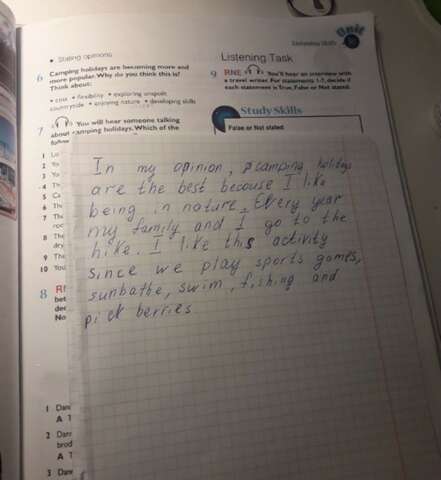 Unit
Listening Skills
• Stating opinions
6 Camping holidays are becoming more and
more popular. Why do you think this is?
Think about:
• cost • flexibility • exploring unspoilt
countryside • enjoying nature • developing skills
7 You will hear someone talking
about camping holidays. Which of the
Listening Task
9 RNE You'll hear an interview with
a travel writer. For statements 1-7, decide if
each statement is True, False or Not stated.
Study Skills
False or Not stated
In my opinion, camping holidays
are the best because I like
being in nature. Every year
my family and I go to the
hike. I like this activity
since we play sports games,
sunbathe, swim, fishing and
pick berries
1 Lo
2 Yo
3 Yo
4 Th
5 Ca
6 Th
7 The
8 The
dry
9 The
10 You
8
1 Dan
A T
2 Dan
brod
A T
3 Dan